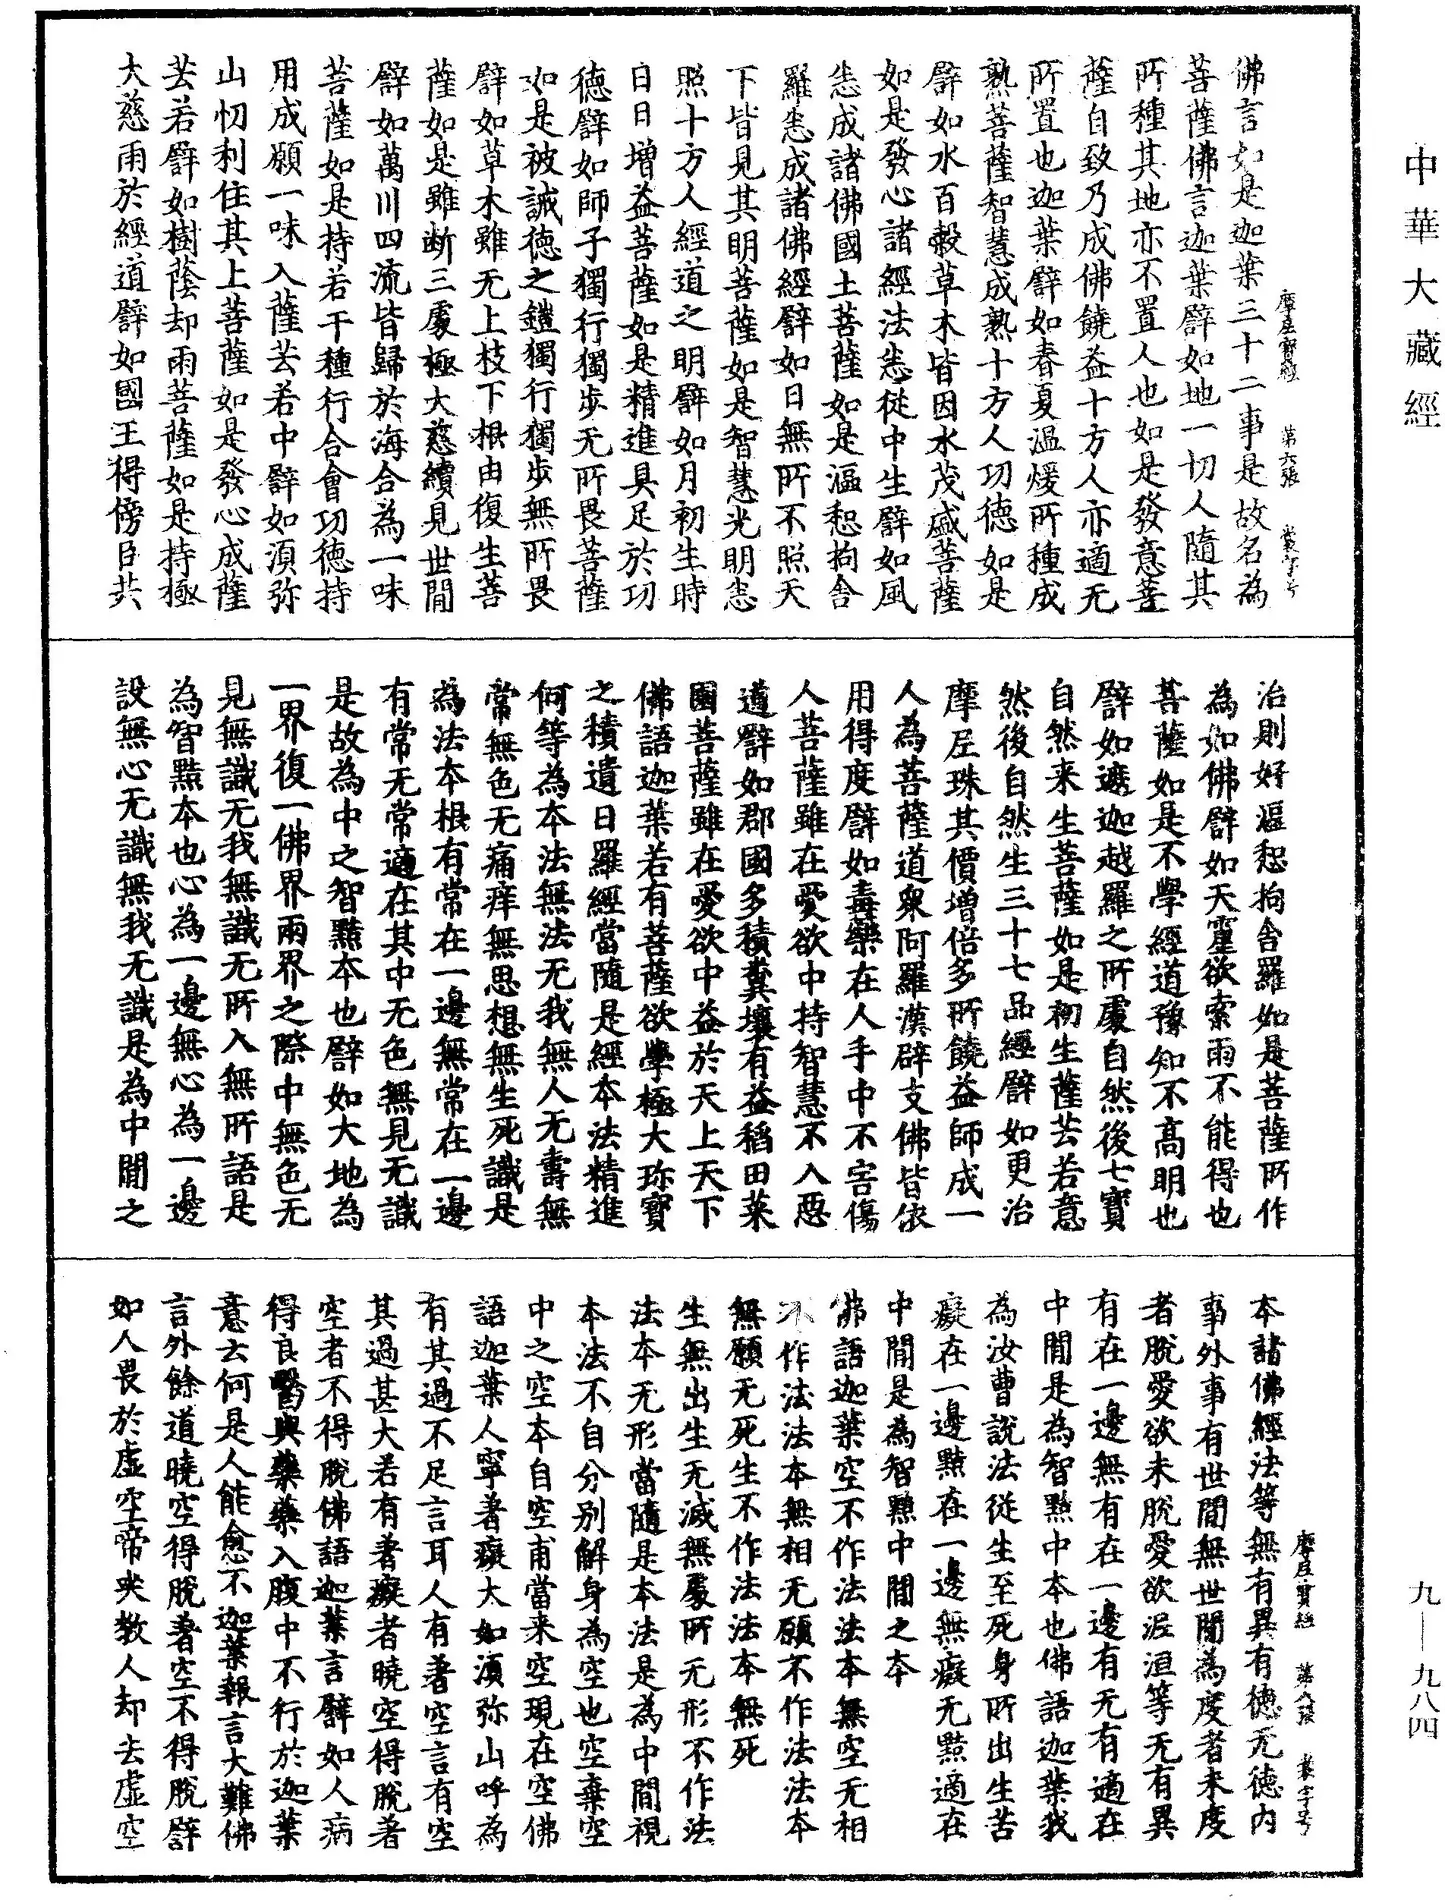 中華大藏經
九—九八四
摩尼寶經 第六張 裳字号
佛言如是迦葉三十二事是故名為
菩薩佛言迦葉譬如地一切人隨其
所種其地亦不置人也如是發意菩
薩自致乃成佛饒益十方人亦適无
所置也迦葉譬如春夏溫煖所種成
熟菩薩智慧成熟十方人功德如是
譬如水百穀草木皆因水茂盛菩薩
如是發心諸經法悉從中生譬如風
悉成諸佛國土菩薩如是漚惒拘舍
羅悉成諸佛經譬如日無所不照天
下皆見其明菩薩如是智慧光明悉
照十方人經道之明譬如月初生時
日日增益菩薩如是精進具足於功
德譬如師子獨行獨步无所畏菩薩
如是被誡德之鎧獨行獨步無所畏
譬如草木雖无上枝下根由復生菩
薩如是雖斷三處極大慈續見世間
譬如萬川四流皆歸於海合為一味
菩薩如是持若干種行合會功德持
用成願一味入薩芸若中譬如湏弥
山忉利住其上菩薩如是發心成薩
芸若譬如樹蔭却雨菩薩如是持極
大慈雨於經道譬如國王得傍臣共
治則好漚惒拘舍羅如是菩薩所作
為如佛譬如天霍欲索雨不能得也
菩薩如是不學經道豫知不高明也
譬如遮迦越羅之所處自然後七寶
自然来生菩薩如是初生薩芸若意
然後自然生三十七品經譬如更治
摩尼珠其價增倍多所饒益師成一
人為菩薩道眾阿羅漢辟支佛皆依
用得度譬如毒藥在人手中不害傷
人菩薩雖在愛欲中持智慧不入惡
道譬如郡國多積糞壤有益稻田菜
園菩薩雖在愛欲中益於天上天下
佛語迦葉若有菩薩欲學極大珎寶
之積遺日羅經當隨是經本法精進
何等為本法無法无我無人无壽無
常無色无痛痒無思想無生死識是
為法本根有常在一邊無常在一邊
有常无常適在其中无色無見无識
是故為中之智黠本也譬如大地為
一界復一佛界兩界之際中無色无
見無識无我無識无所入無所語是
為智黠本也心為一邊無心為一邊
設無心无識無我无識是為中間之
本諸佛經法等無有異有德无德內
事外事有世間無世間為度者未度
者脫愛欲未脫愛欲泥洹等无有異
有在一邊無有在一邊有无有適在
中間是為智黠中本也佛語迦葉我
為汝曹說法從生至死身所出生苦
癡在一邊黠在一邊無癡无黠適在
中間是為智黠中間之本
佛語迦葉空不作法法本無空无相
不作法法本無相无願不作法法本
無願无死生不作法法本無死
生無出生无滅無處所无形不作法
法本无形當隨是本法是為中間視
本法不自分別解身為空也空棄空
中之空本自空甫當来空現在空佛
語迦葉人寧著癡大如湏弥山呼為
有其過不足言耳人有著空言有空
其過甚大若有著癡者曉空得脫著
空者不得脫佛語迦葉言譬如人病
得良醫與藥藥入腹中不行於迦葉
意云何是人能愈不迦葉報言大難佛
言外餘道曉空得脫著空不得脫譬
如人畏於虛空啼哭教人却去虛空
摩尼寶經 第六張 裳字号